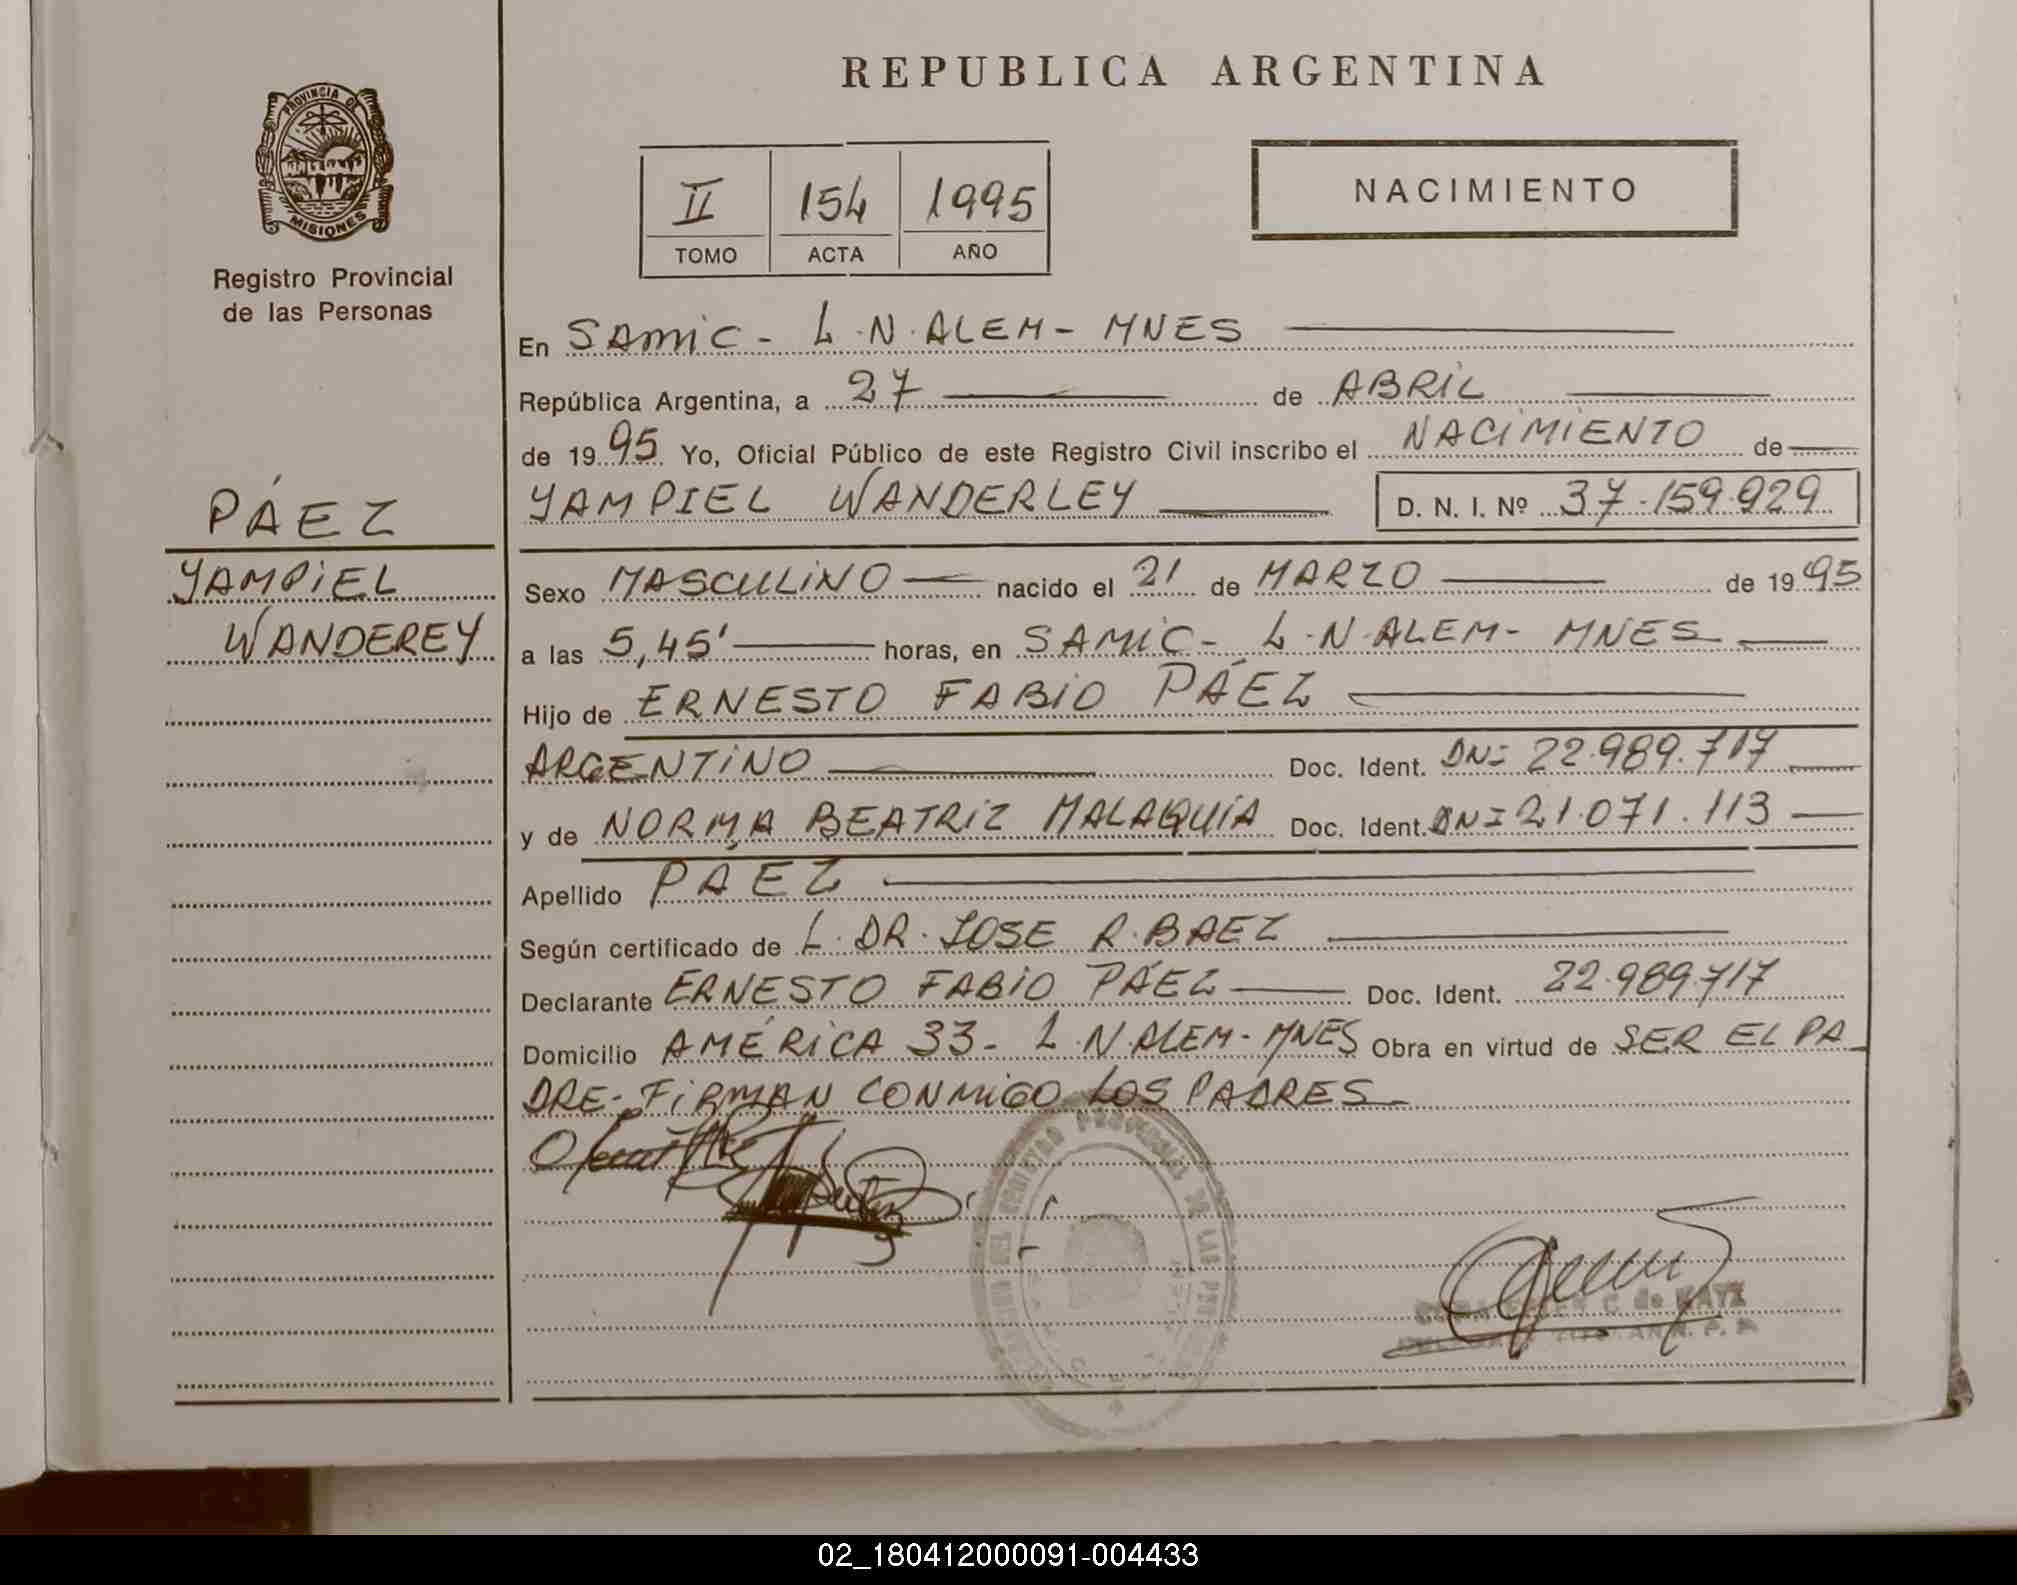 REPUBLICA ARGENTINA
PROVINCIA DE
MISIONES
Registro Provincial
de las Personas
II 154 1995
TOMO ACTA AÑO
NACIMIENTO
En SAMIC - L.N.ALEM - MNES
República Argentina, a 27 de ABRIL
de 1995 Yo, Oficial Público de este Registro Civil inscribo el NACIMIENTO de
YAMPIEL WANDERLEY D. N. I. Nº 37.159.929
PÁEZ
YAMPIEL
WANDEREY
Sexo MASCULINO nacido el 21 de MARZO de 1995
a las 5,45' horas, en SAMIC - L.N.ALEM - MNES
Hijo de ERNESTO FABIO PÁEZ
ARGENTINO Doc. Ident. DNI 22.989.717
y de NORMA BEATRIZ MALAQUIA Doc. Ident. DNI 21.071.113
Apellido PÁEZ
Según certificado de L. DR. JOSE R. BAEZ
Declarante ERNESTO FABIO PÁEZ Doc. Ident. 22.989.717
Domicilio AMÉRICA 33 - L.N.ALEM - MNES Obra en virtud de SER EL PA
DRE - FIRMAN CONMIGO LOS PADRES
PROVINCIAL DE LAS
C. de KATZ
02_180412000091-004433